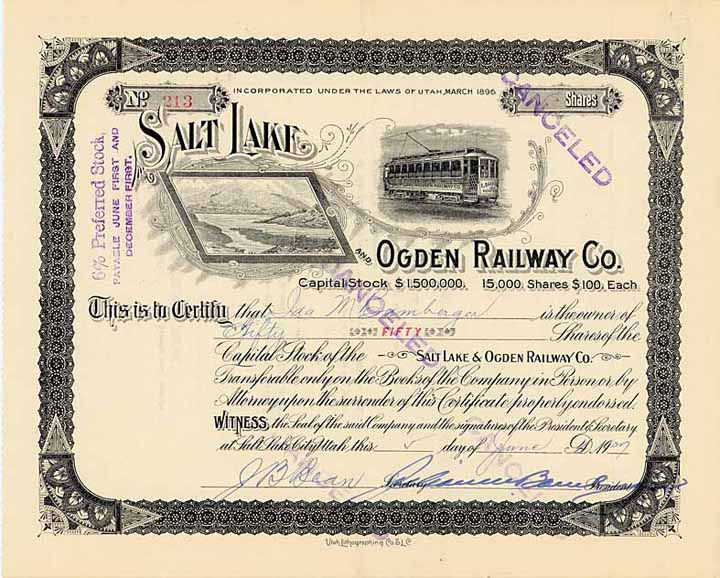 INCORPORATED UNDER THE LAWS OF UTAH, MARCH 1896
No 213
Shares
CANCELED
6% Preferred Stock,
PAYABLE JUNE FIRST AND
DECEMBER FIRST.
SALT LAKE
AND OGDEN RAILWAY CO.
Capital Stock $1,500,000. 15,000 Shares $100, Each
CANCELED
This is to Certify that Ida M Bamberger is the owner of
Fifty FIFTY Shares of the
Capital Stock of the SALT LAKE & OGDEN RAILWAY CO.
Transferable only on the Books of the Company in Person or by
Attorney upon the surrender of this Certificate properly endorsed.
WITNESS, the Seal of the said Company and the signatures of the President & Secretary
at Salt Lake City, Utah, this 5 day of June AD 1907
J B Bean Secretary President
CANCELED
Utah Lithographing Co. S.L.C.